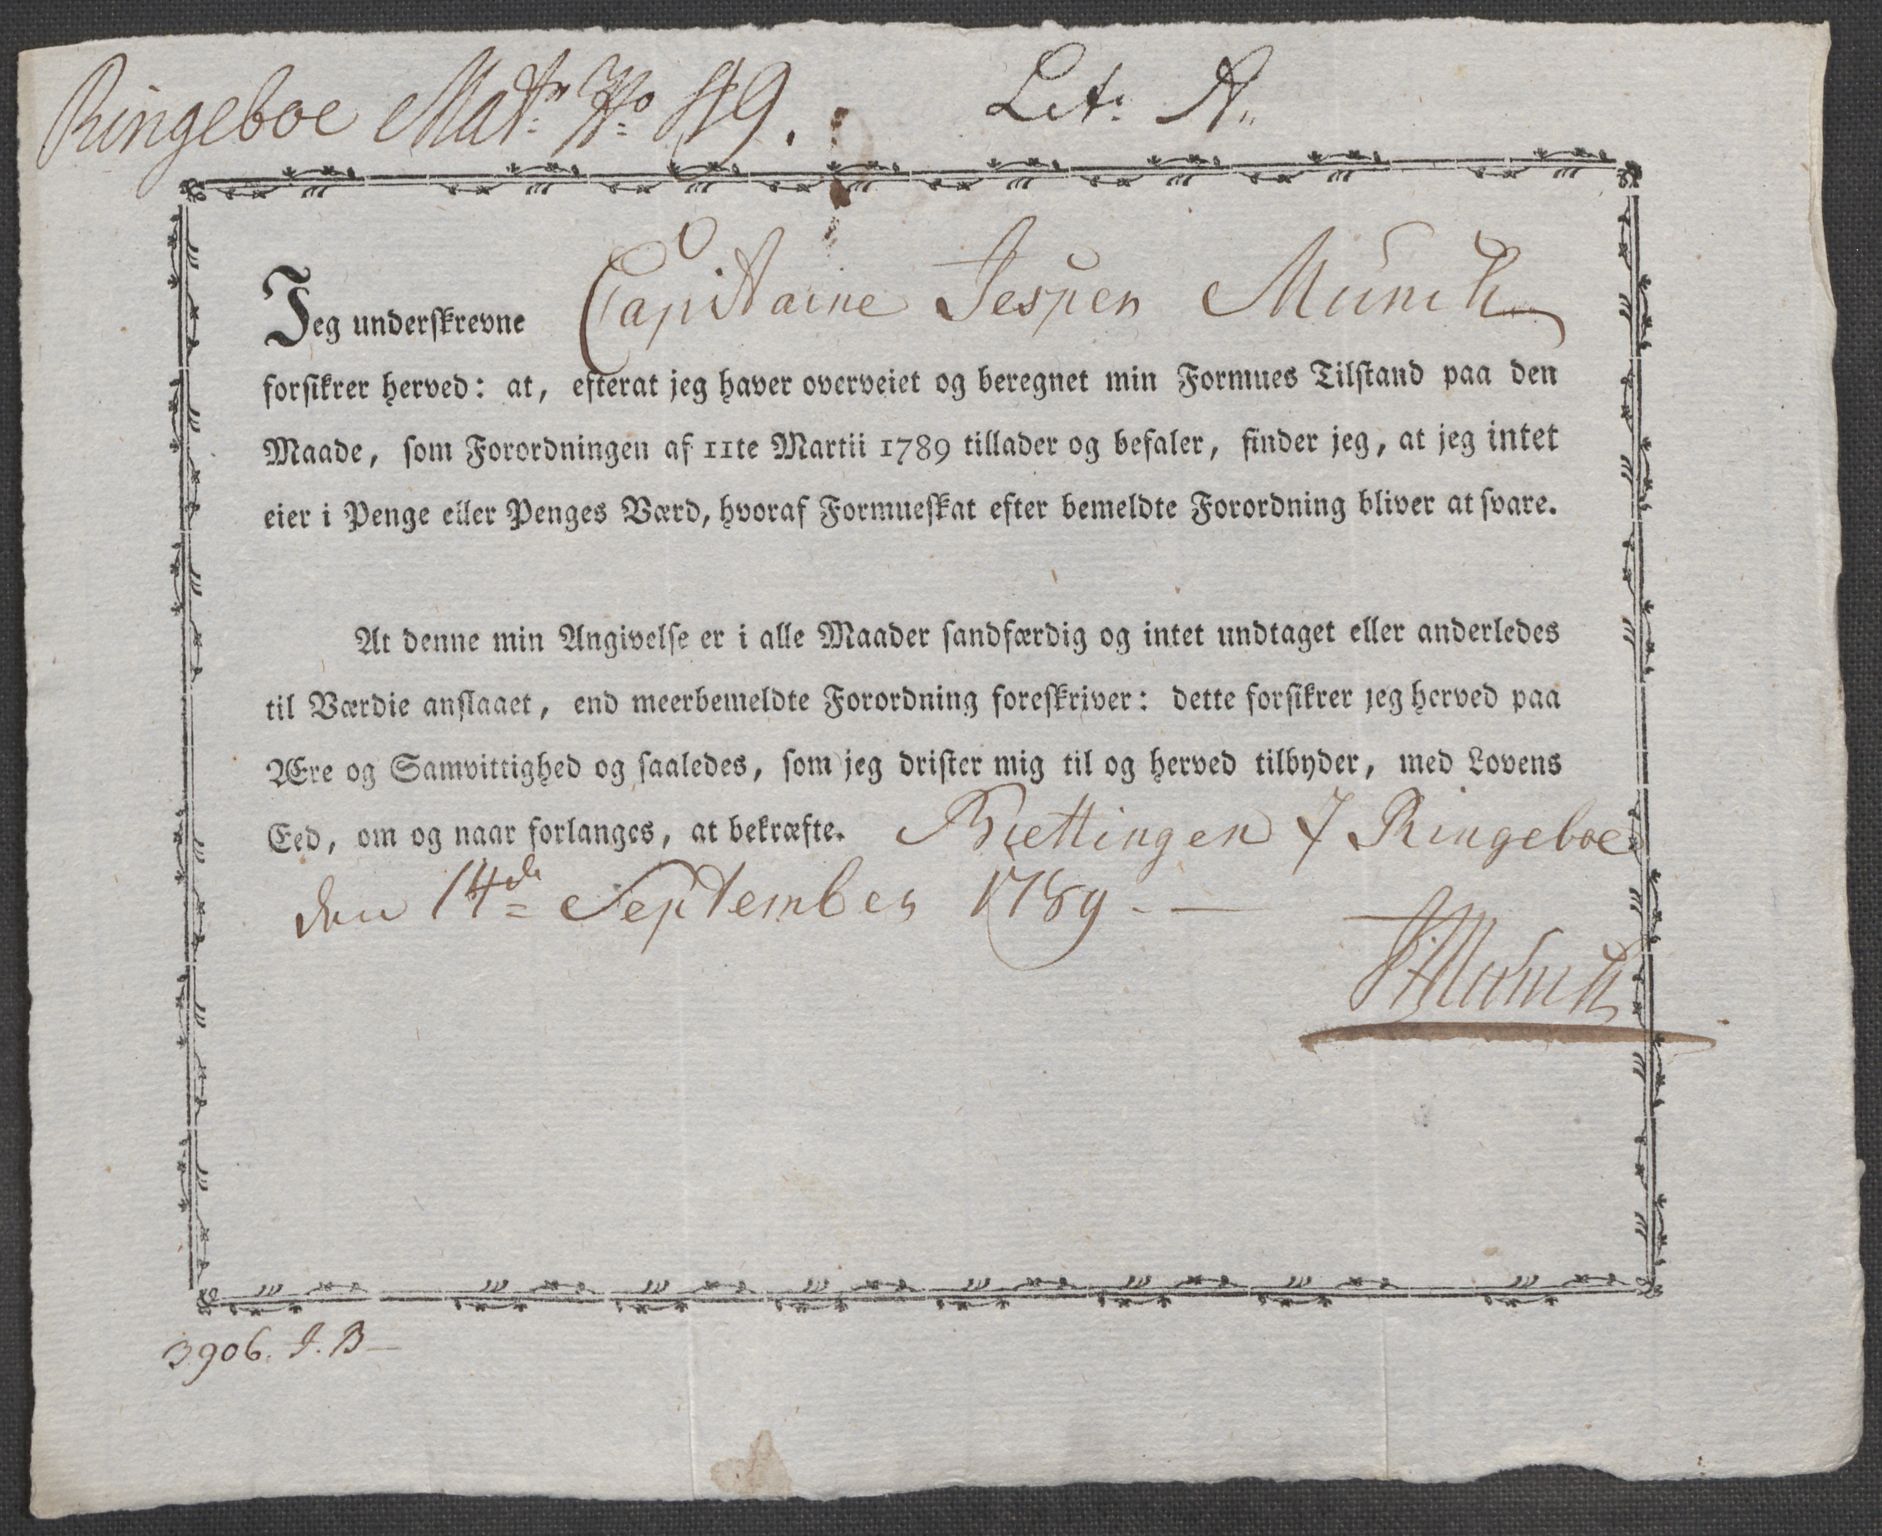 Ringeboe Matr: No: 49. Lit: A.
Jeg underskrevne Capitaine Jesper Munch
forsikrer herved: at, efterat jeg haver overveiet og beregnet min Formues Tilstand paa den
Maade, som Forordningen af 11te Martii 1789 tillader og befaler, finder jeg, at jeg intet
eier i Penge eller Penges Værd, hvoraf Formueskat efter bemeldte Forordning bliver at svare.
At denne min Angivelse er i alle Maader sandfærdig og intet undtaget eller anderledes
til Værdie anslaaet, end meerbemeldte Forordning foreskriver: dette forsikrer jeg herved paa
Ære og Samvittighed og saaledes, som jeg drister mig til og herved tilbyder, med Lovens
Eed, om og naar forlanges, at bekræfte. Brettingen J Ringeboe
den 14de September 1789. —
J:Munch
3906. J. B—